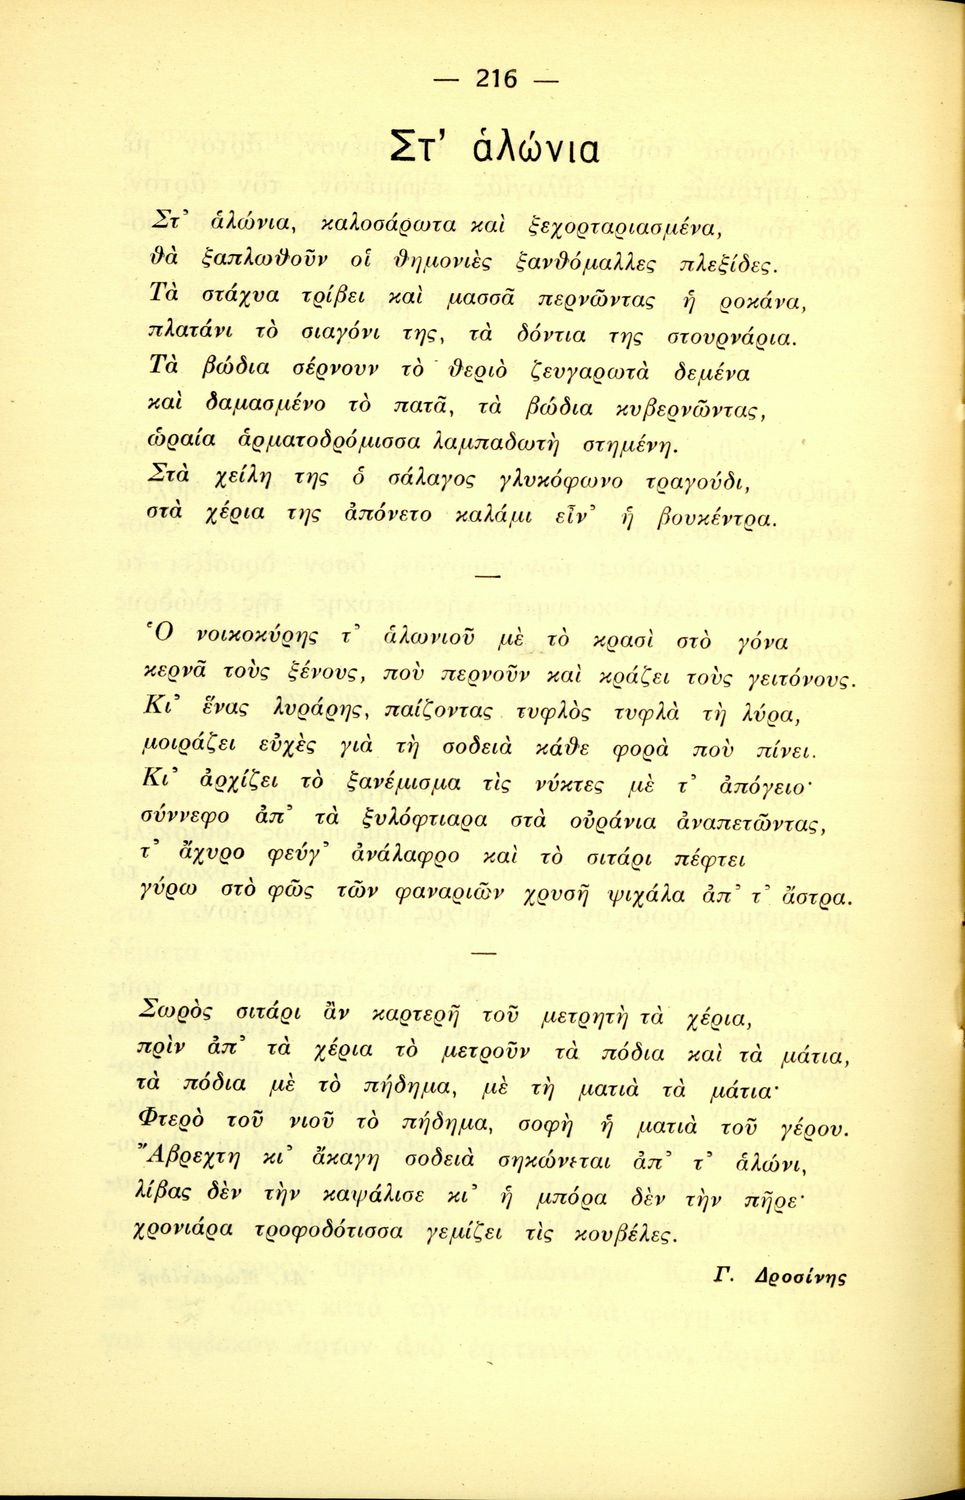 — 216 —
Στ’ ἁλώνια
Στ’ ἁλώνια, καλοσάρωτα καὶ ξεχορταριασμένα,
θὰ ξαπλωθοῦν οἱ θημονιὲς ξανθόμαλλες πλεξίδες.
Τὰ στάχυα τρίβει καὶ μασσᾶ περνῶντας ἡ ροκάνα,
πλατάνι τὸ σιαγόνι της, τὰ δόντια της στουρνάρια.
Τὰ βώδια σέρνουν τὸ θεριὸ ζευγαρωτὰ δεμένα
καὶ δαμασμένο τὸ πατᾶ, τὰ βώδια κυβερνῶντας,
ὡραία ἁρματοδρόμισσα λαμπαδωτὴ στημένη.
Στὰ χείλη της ὁ σάλαγος γλυκόφωνο τραγούδι,
στὰ χέρια της ἀπόνετο καλάμι εἶν’ ἡ βουκέντρα.
—
Ὁ νοικοκύρης τ’ ἁλωνιοῦ μὲ τὸ κρασὶ στὸ γόνα
κερνᾶ τοὺς ξένους, ποὺ περνοῦν καὶ κράζει τοὺς γειτόνους.
Κι’ ἕνας λυράρης, παίζοντας τυφλὸς τυφλὰ τὴ λύρα,
μοιράζει εὐχὲς γιὰ τὴ σοδειὰ κάθε φορὰ ποὺ πίνει.
Κι’ ἀρχίζει τὸ ξανέμισμα τὶς νύκτες μὲ τ’ ἀπόγειο·
σύννεφο ἀπ’ τὰ ξυλόφτιαρα στὰ οὐράνια ἀναπετῶντας,
τ’ ἄχυρο φεύγ’ ἀνάλαφρο καὶ τὸ σιτάρι πέφτει
γύρω στὸ φῶς τῶν φαναριῶν χρυσῆ ψιχάλα ἀπ’ τ’ ἄστρα.
—
Σωρὸς σιτάρι ἂν καρτερῆ τοῦ μετρητὴ τὰ χέρια,
πρὶν ἀπ’ τὰ χέρια τὸ μετροῦν τὰ πόδια καὶ τὰ μάτια,
τὰ πόδια μὲ τὸ πήδημα, μὲ τὴ ματιὰ τὰ μάτια·
Φτερὸ τοῦ νιοῦ τὸ πήδημα, σοφὴ ἡ ματιὰ τοῦ γέρου.
Ἄβρεχτη κι’ ἄκαγη σοδειὰ σηκώνεται ἀπ’ τ’ ἁλώνι,
λίβας δὲν τὴν καψάλισε κι’ ἡ μπόρα δὲν τὴν πῆρε·
χρονιάρα τροφοδότισσα γεμίζει τὶς κουβέλες.
Γ. Δροσίνης